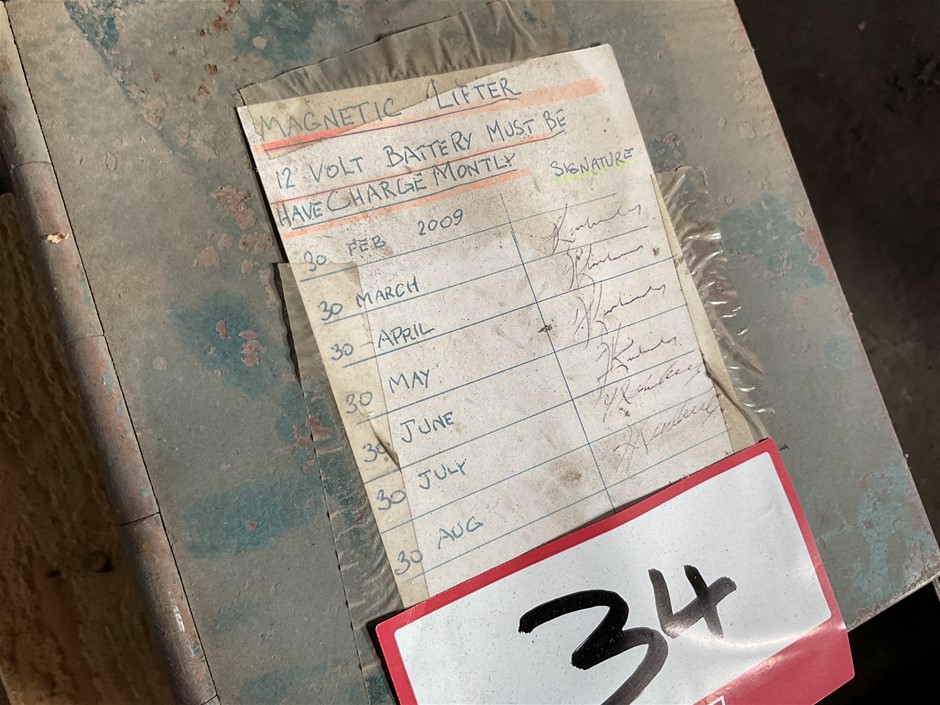 MAGNETIC LIFTER
12 VOLT BATTERY MUST BE
HAVE CHARGE MONTLY SIGNATURE
30 FEB 2009
30 MARCH
30 APRIL
30 MAY
30 JUNE
30 JULY
30 AUG
34